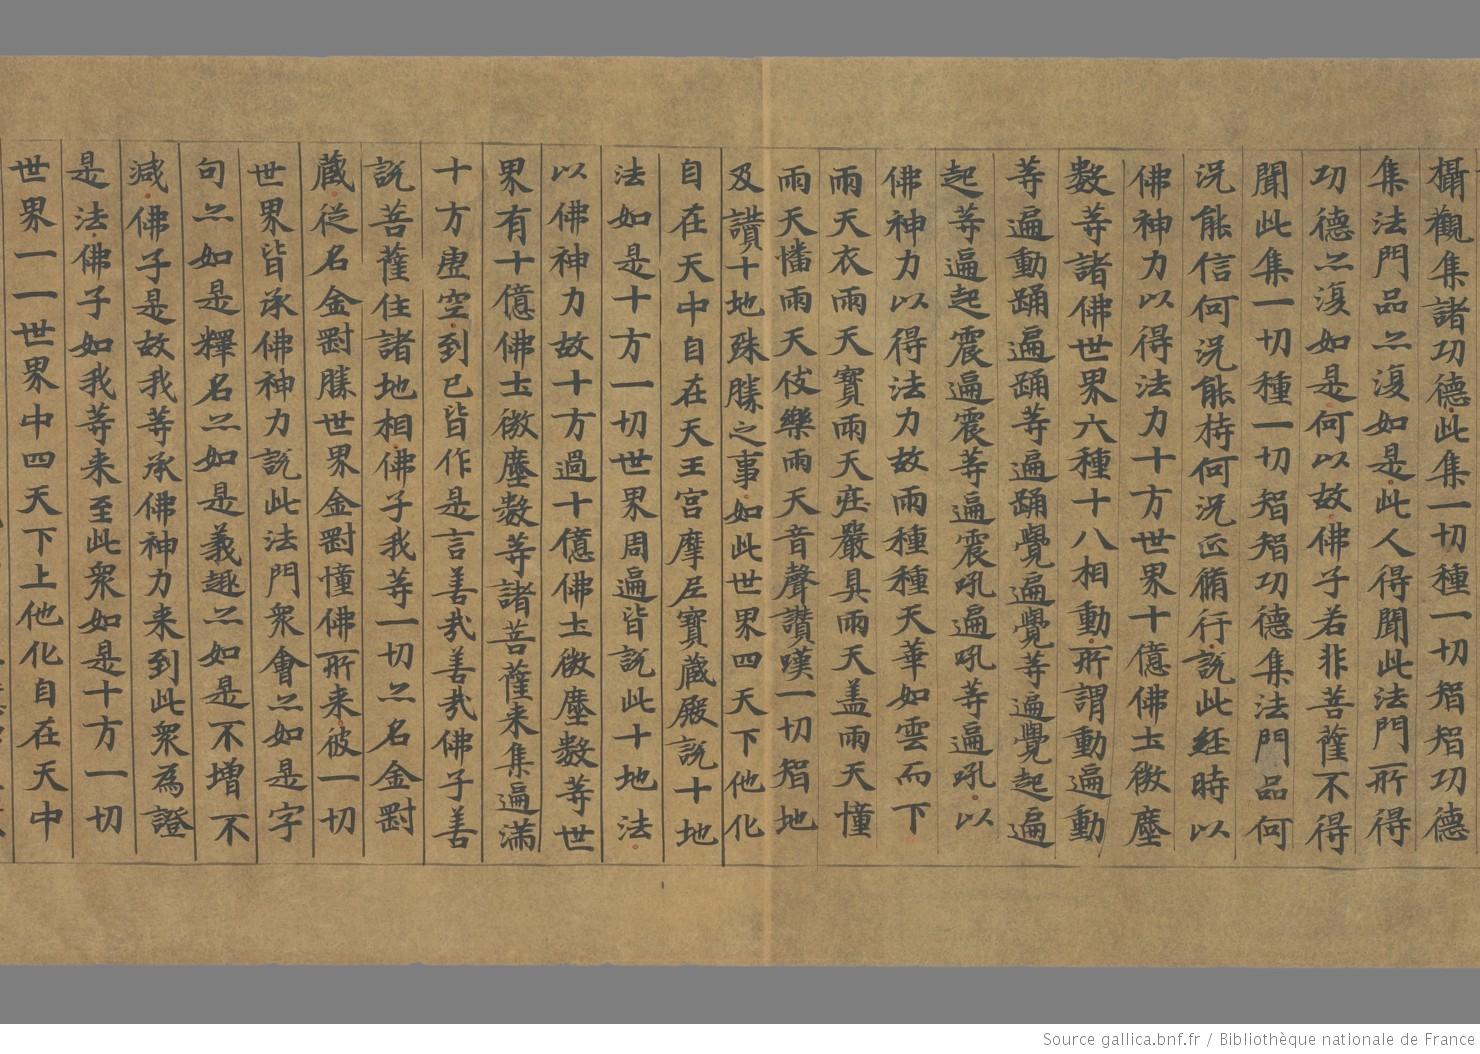 攝觀集諸功德此集一切種一切智智功德
集法門品亦復如是此人得聞此法門所得
功德亦復如是何以故佛子若非菩薩不得
聞此集一切種一切智智功德集法門品何
況能信何況能持何況正脩行說此經時以
佛神力以得法力十方世界十億佛土微塵
數等諸佛世界六種十八相動所謂動遍動
等遍動踊遍踊等遍踊覺遍覺等遍覺起遍
起等遍起震遍震等遍震吼遍吼等遍吼以
佛神力以得法力故雨種種天華如雲而下
雨天衣雨天寶雨天莊嚴具雨天盖雨天憧
雨天憣雨天伎樂雨天音聲讚嘆一切智地
及讚十地殊勝之事如此世界四天下他化
自在天中自在天王宮摩尼寶藏殿說十地
法如是十方一切世界周遍皆說此十地法
以佛神力故十方過十億佛土微塵數等世
界有十億佛土微塵數等諸菩薩来集遍滿
十方虛空到已皆作是言善哉善哉佛子善
說菩薩住諸地相佛子我等一切亦名金剛
藏從名金剛勝世界金剛憧佛所来彼一切
世界皆承佛神力說此法門衆會亦如是字
句亦如是釋名亦如是義趣亦如是不增不
減佛子是故我等承佛神力来到此衆為證
是法佛子如我等来至此衆如是十方一切
世界一一世界中四天下上他化自在天中
Source gallica.bnf.fr / Bibliothèque nationale de France